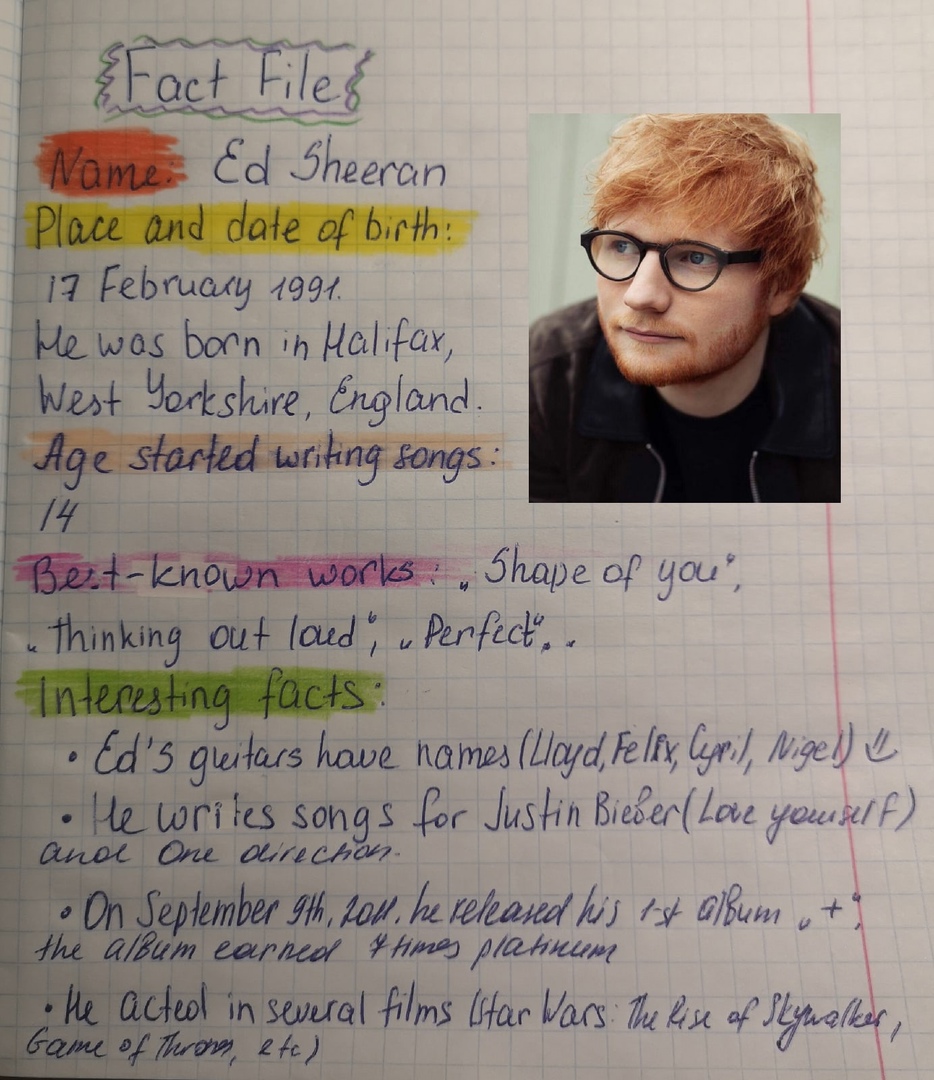 Fact File
Name: Ed Sheeran
Place and date of birth:
17 February 1991.
He was born in Halifax,
West Yorkshire, England.
Age started writing songs:
14
Best-known works: „Shape of you“,
„Thinking out loud“, „Perfect“. .
Interesting facts:
• Ed's guitars have names (Lloyd, Felix, Cyril, Nigel)
• He writes songs for Justin Bieber (Love yourself)
and One direction.
• On September 9th, 2011, he released his 1-st album „+“,
the album earned 7 times platinum
• He acted in several films (Star Wars: The Rise of Skywalker,
Game of Thrones, etc)